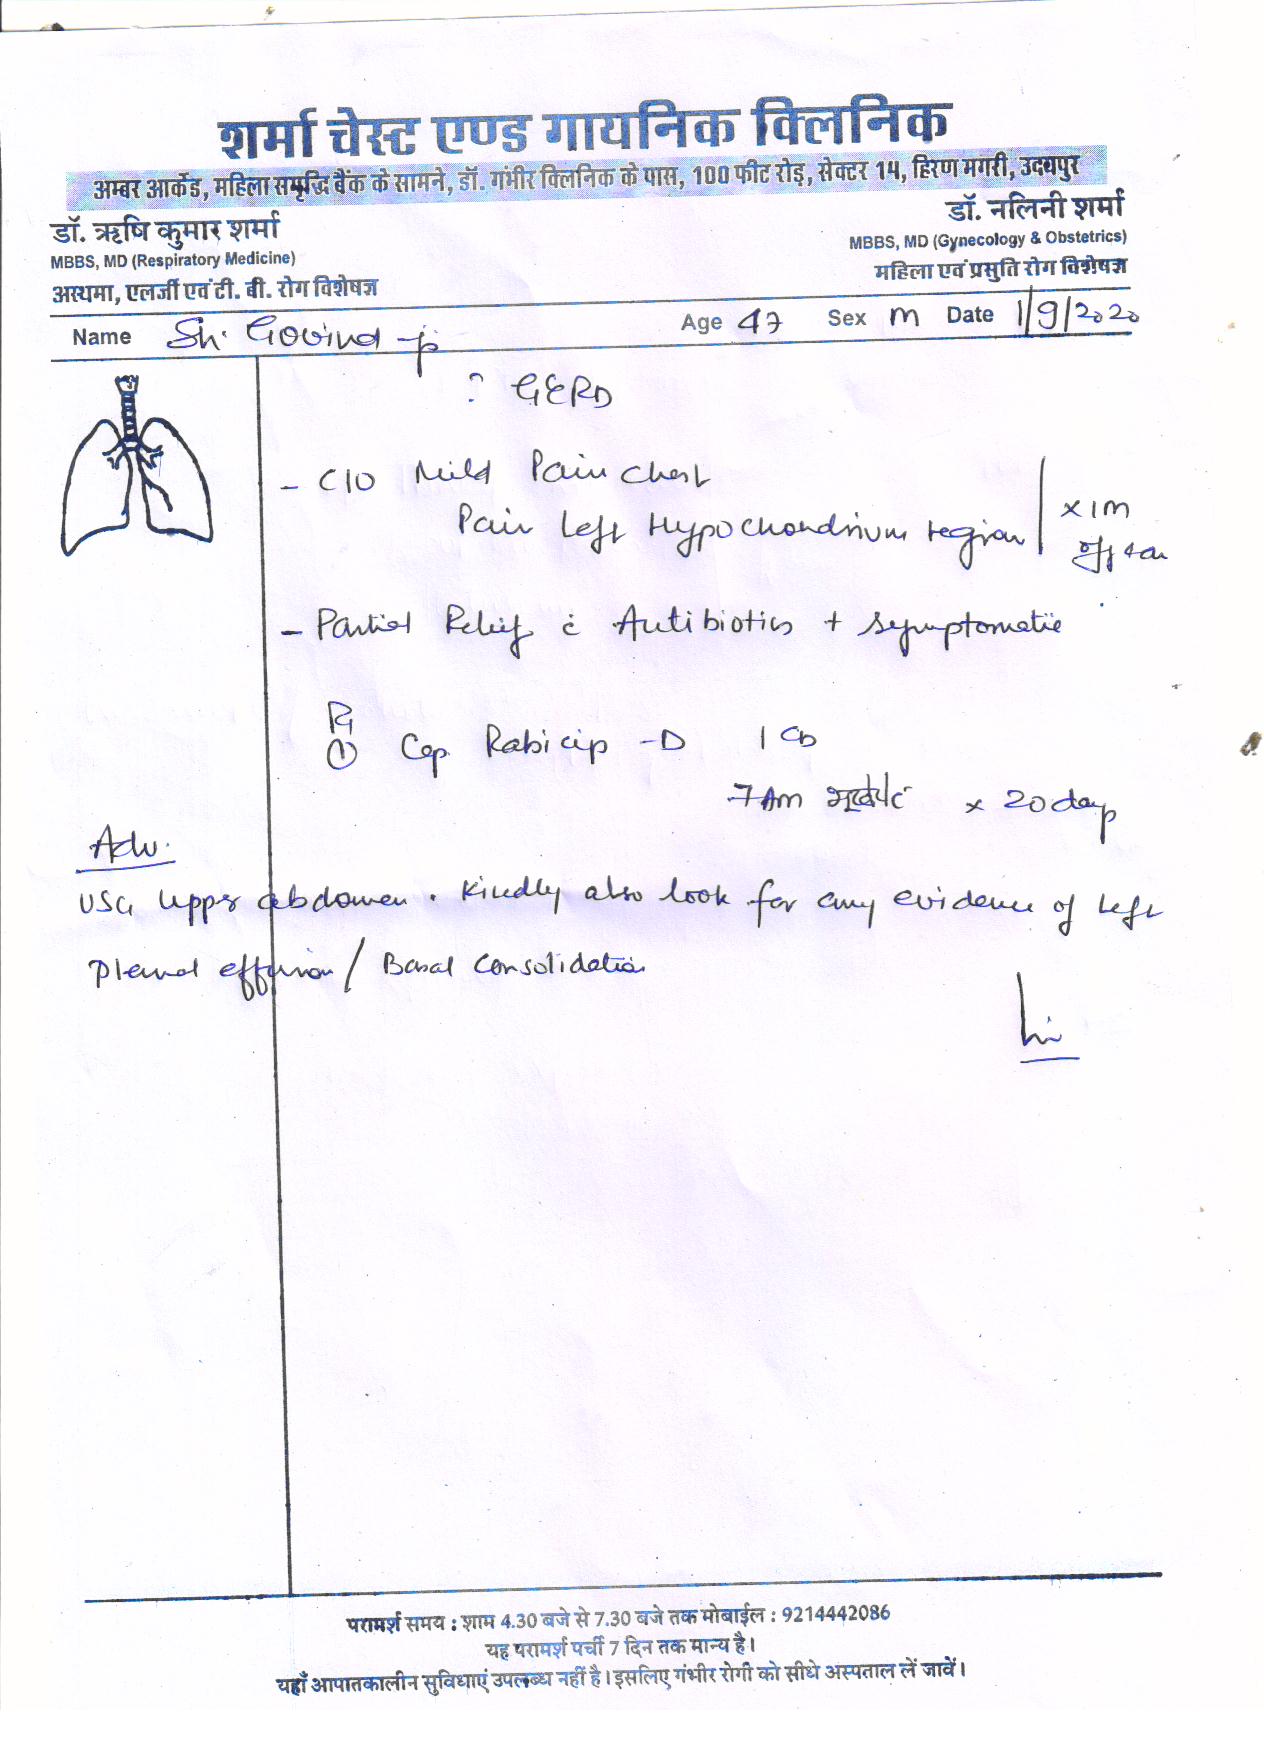 शर्मा चेस्ट एण्ड गायनिक क्लिनिक
अम्बर आर्केड, महिला समृद्धि बैंक के सामने, डॉ. गंभीर क्लिनिक के पास, 100 फीट रोड़, सेक्टर 14, हिरण मगरी, उदयपुर
डॉ. ऋषि कुमार शर्मा
MBBS, MD (Respiratory Medicine)
अस्थमा, एलर्जी एवं टी. बी. रोग विशेषज्ञ
डॉ. नलिनी शर्मा
MBBS, MD (Gynecology & Obstetrics)
महिला एवं प्रसुति रोग विशेषज्ञ
Name Sh. Govind ji Age 47 Sex M Date 1/9/2020
? GERD
- C/O Mild Pain chest
Pain Left Hypochondrium region
x 1m
- Partial Relief c̄ Antibiotics + symptomatic
Rx
① Cap. Rabicip -D 1 OD
7 AM x 20 days
Adv.
USG Upper abdomen. Kindly also look for any evidence of Left
Pleural effusion / Basal Consolidation
परामर्श समय : शाम 4.30 बजे से 7.30 बजे तक मोबाईल : 9214442086
यह परामर्श पर्ची 7 दिन तक मान्य है।
यहाँ आपातकालीन सुविधाएं उपलब्ध नहीं है। इसलिए गंभीर रोगी को सीधे अस्पताल लें जावें।